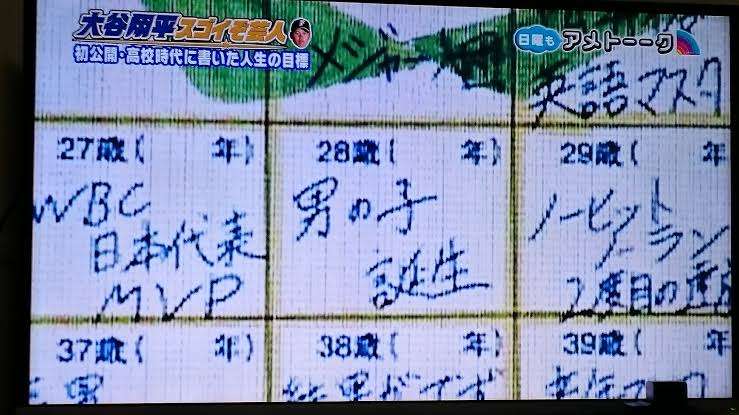 大谷翔平スゴイぞ芸人
日曜もアメトーーク
初公開・高校時代に書いた人生の目標
メジャー
英語マスター
27歳( 年)
28歳( 年)
29歳( 年
WBC
日本代表
MVP
男の子
誕生
ノーヒット
ノーラン
2度目の達成
37歳( 年)
38歳( 年)
39歳( 年